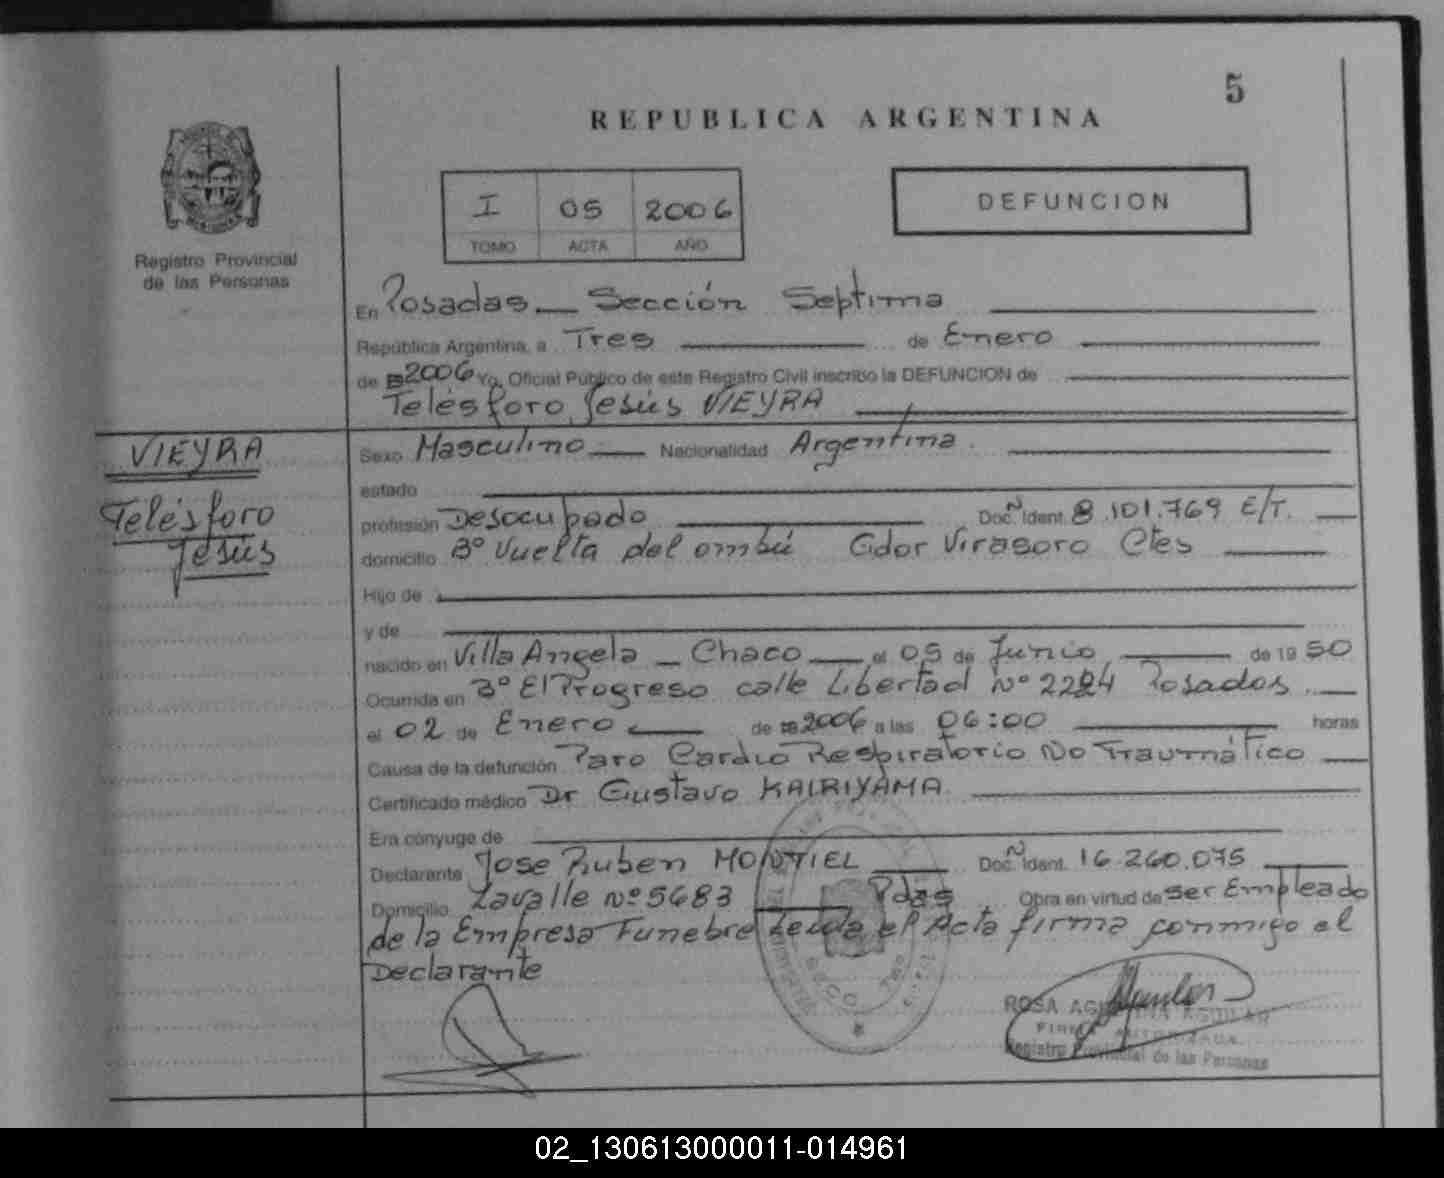 5
REPUBLICA ARGENTINA
I 05 2006
TOMO ACTA AÑO
DEFUNCION
Registro Provincial
de las Personas
En Posadas Sección Septima
República Argentina, a Tres de Enero
de 2006 Yo, Oficial Público de este Registro Civil inscribo la DEFUNCION de
Telésforo Jesús VIEYRA
VIEYRA
Telésforo
Jesús
Sexo Masculino Nacionalidad Argentina
estado
profesión Desocupado Doc. Ident. 8.101.769 E/T.
domicilio Bº Vuelta del ombú Gdor Virasoro Ctes
Hijo de
y de
nacido en Villa Angela - Chaco el 05 de Junio de 1950
Ocurrida en Bº El Progreso calle Libertad Nº 2224 Posadas
el 02 de Enero de 2006 a las 06:00 horas
Causa de la defunción Paro Cardio Respiratorio No Traumático
Certificado médico Dr Gustavo KAIRIYAMA
Era cónyuge de
Declarante Jose Ruben MONTIEL Doc. Ident. 16.260.075
Domicilio Lavalle Nº 5683 Pdas Obra en virtud de ser Empleado
de la Empresa Funebre Leida el Acta firma conmigo el
Declarante
ROSA AGUILAR
FIRMA AUTORIZADA
Registro Provincial de las Personas
02_130613000011-014961